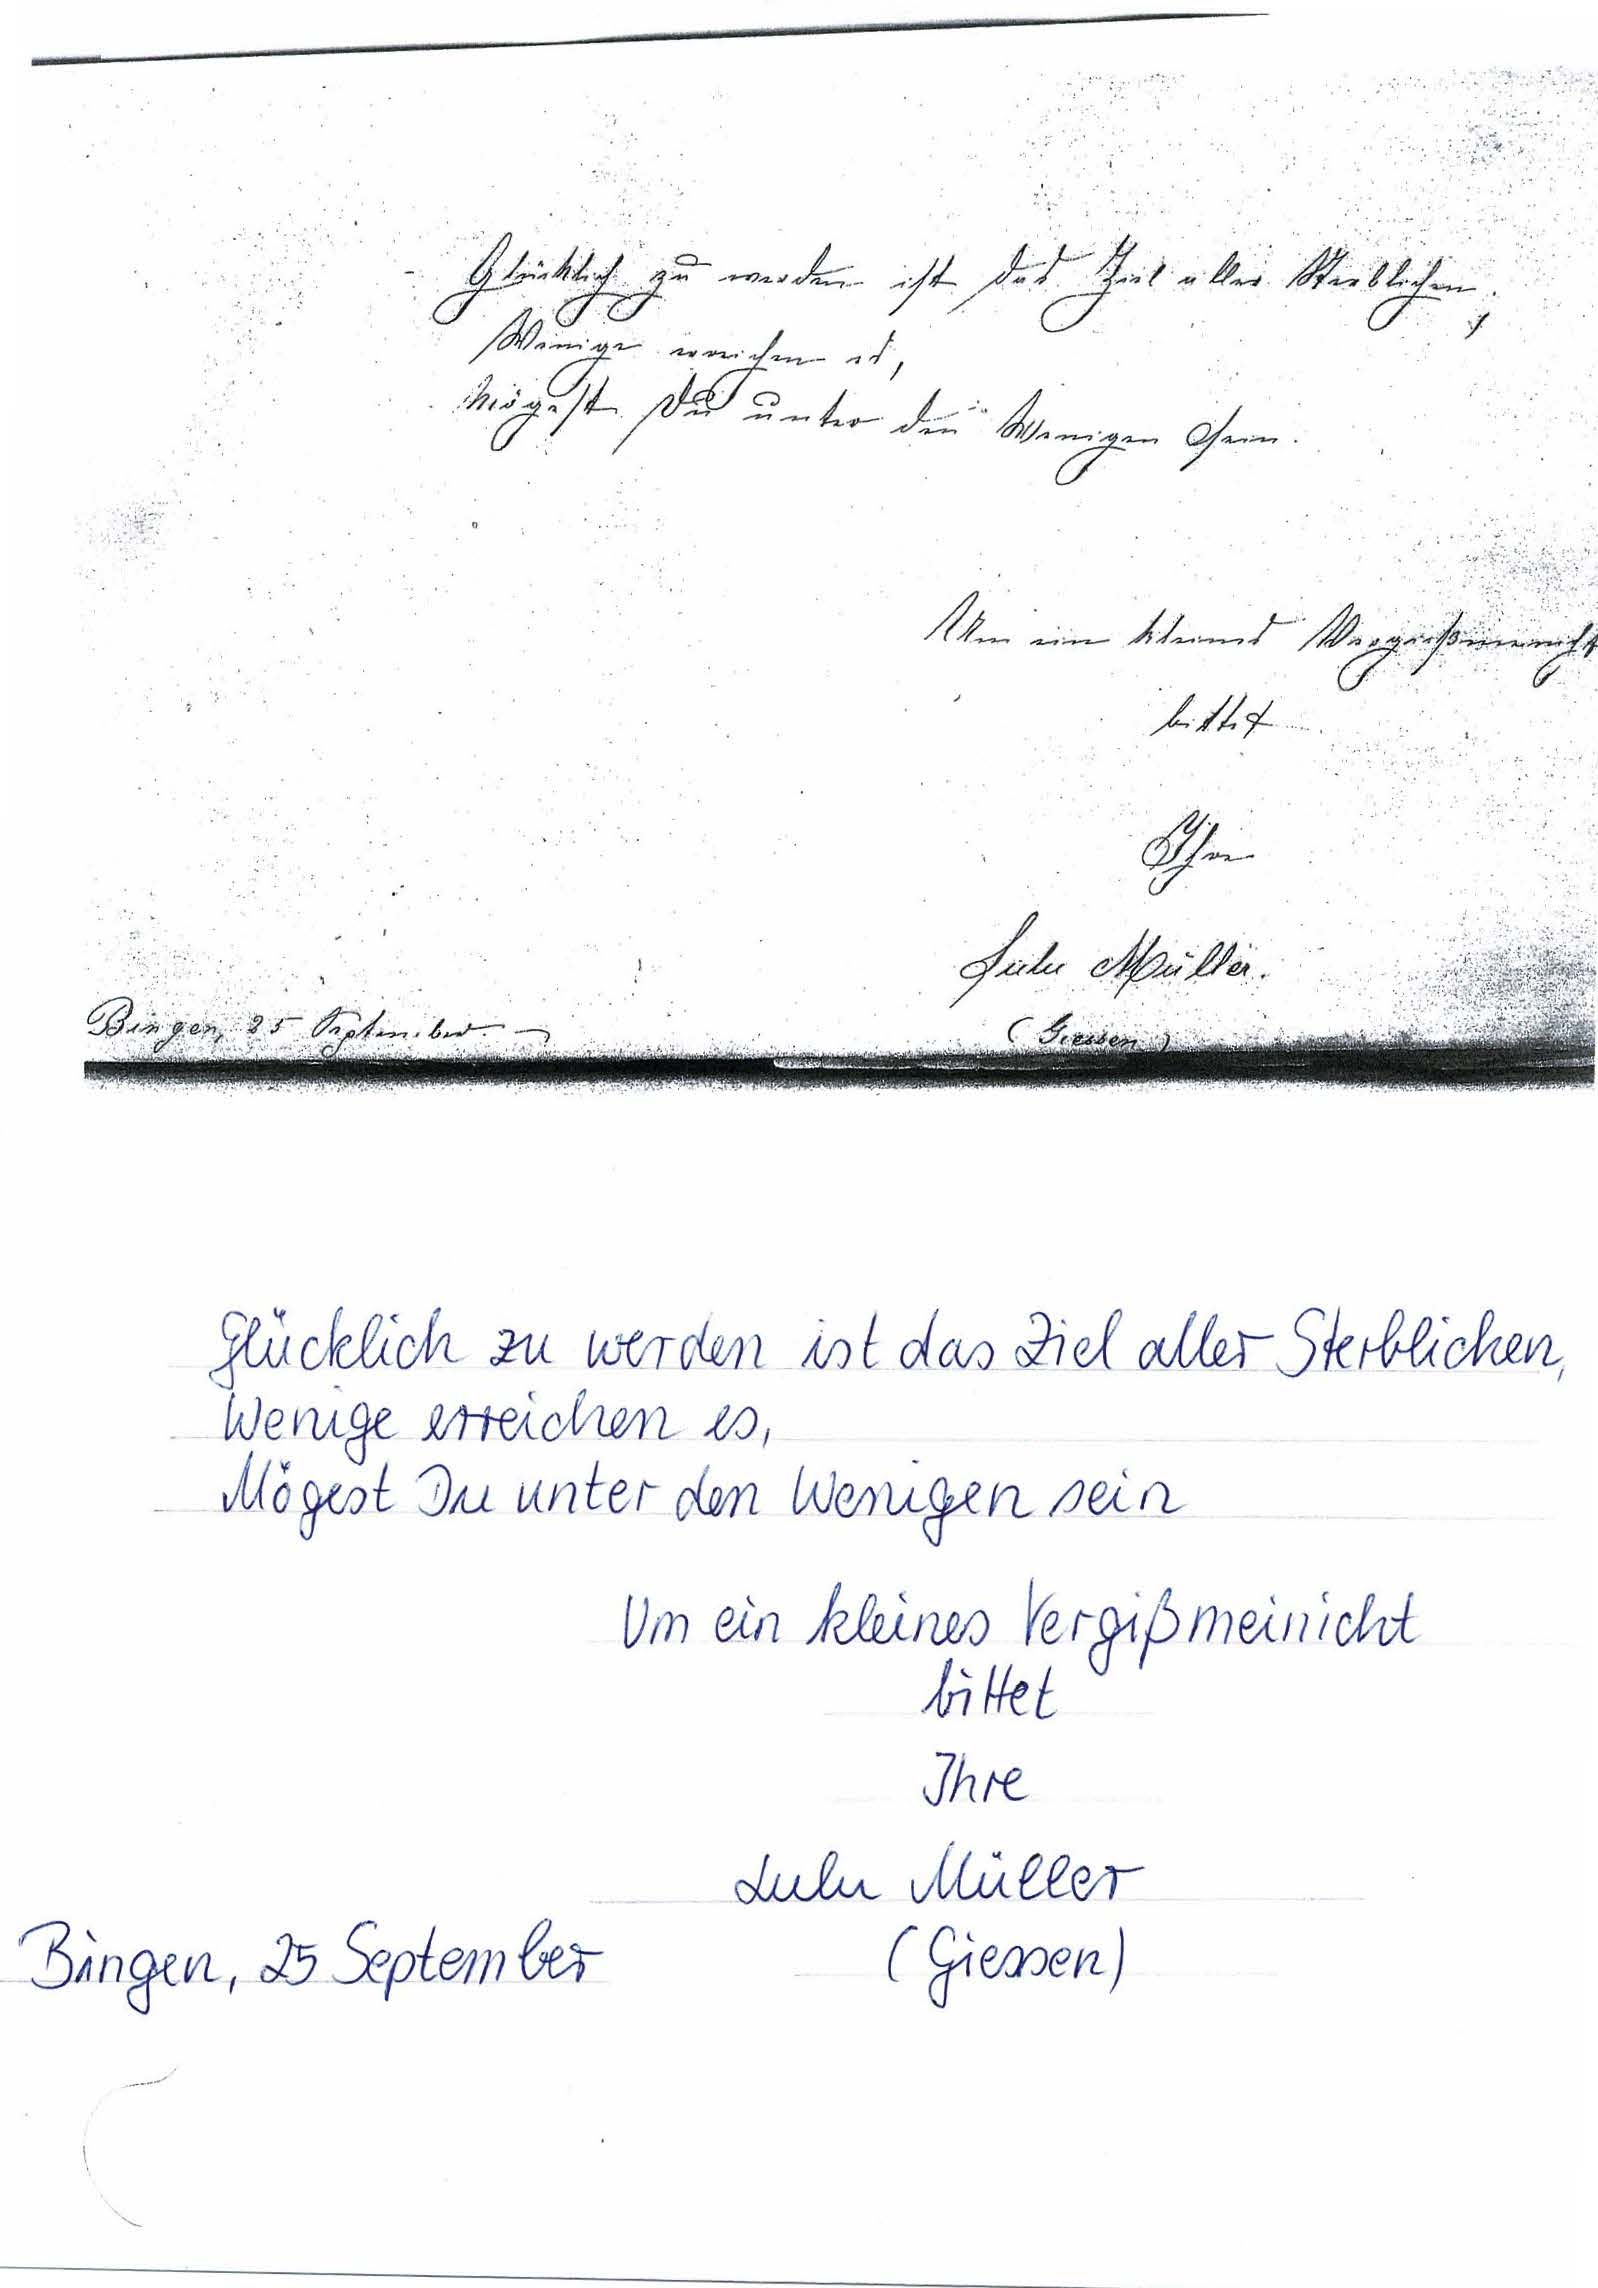 Glücklich zu werden ist das Ziel aller Sterblichen;
Wenige erreichen es,
Mögest Du unter den Wenigen sein.
Um ein kleines Vergißmeinnicht
bittet
Ihre
Lulu Müller.
Bingen, 25 September. (Giessen)
Glücklich zu werden ist das Ziel aller Sterblichen,
Wenige erreichen es,
Mögest Du unter den Wenigen sein
Um ein kleines Vergißmeinicht
bittet
Ihre
Lulu Müller
Bingen, 25 September (Giessen)